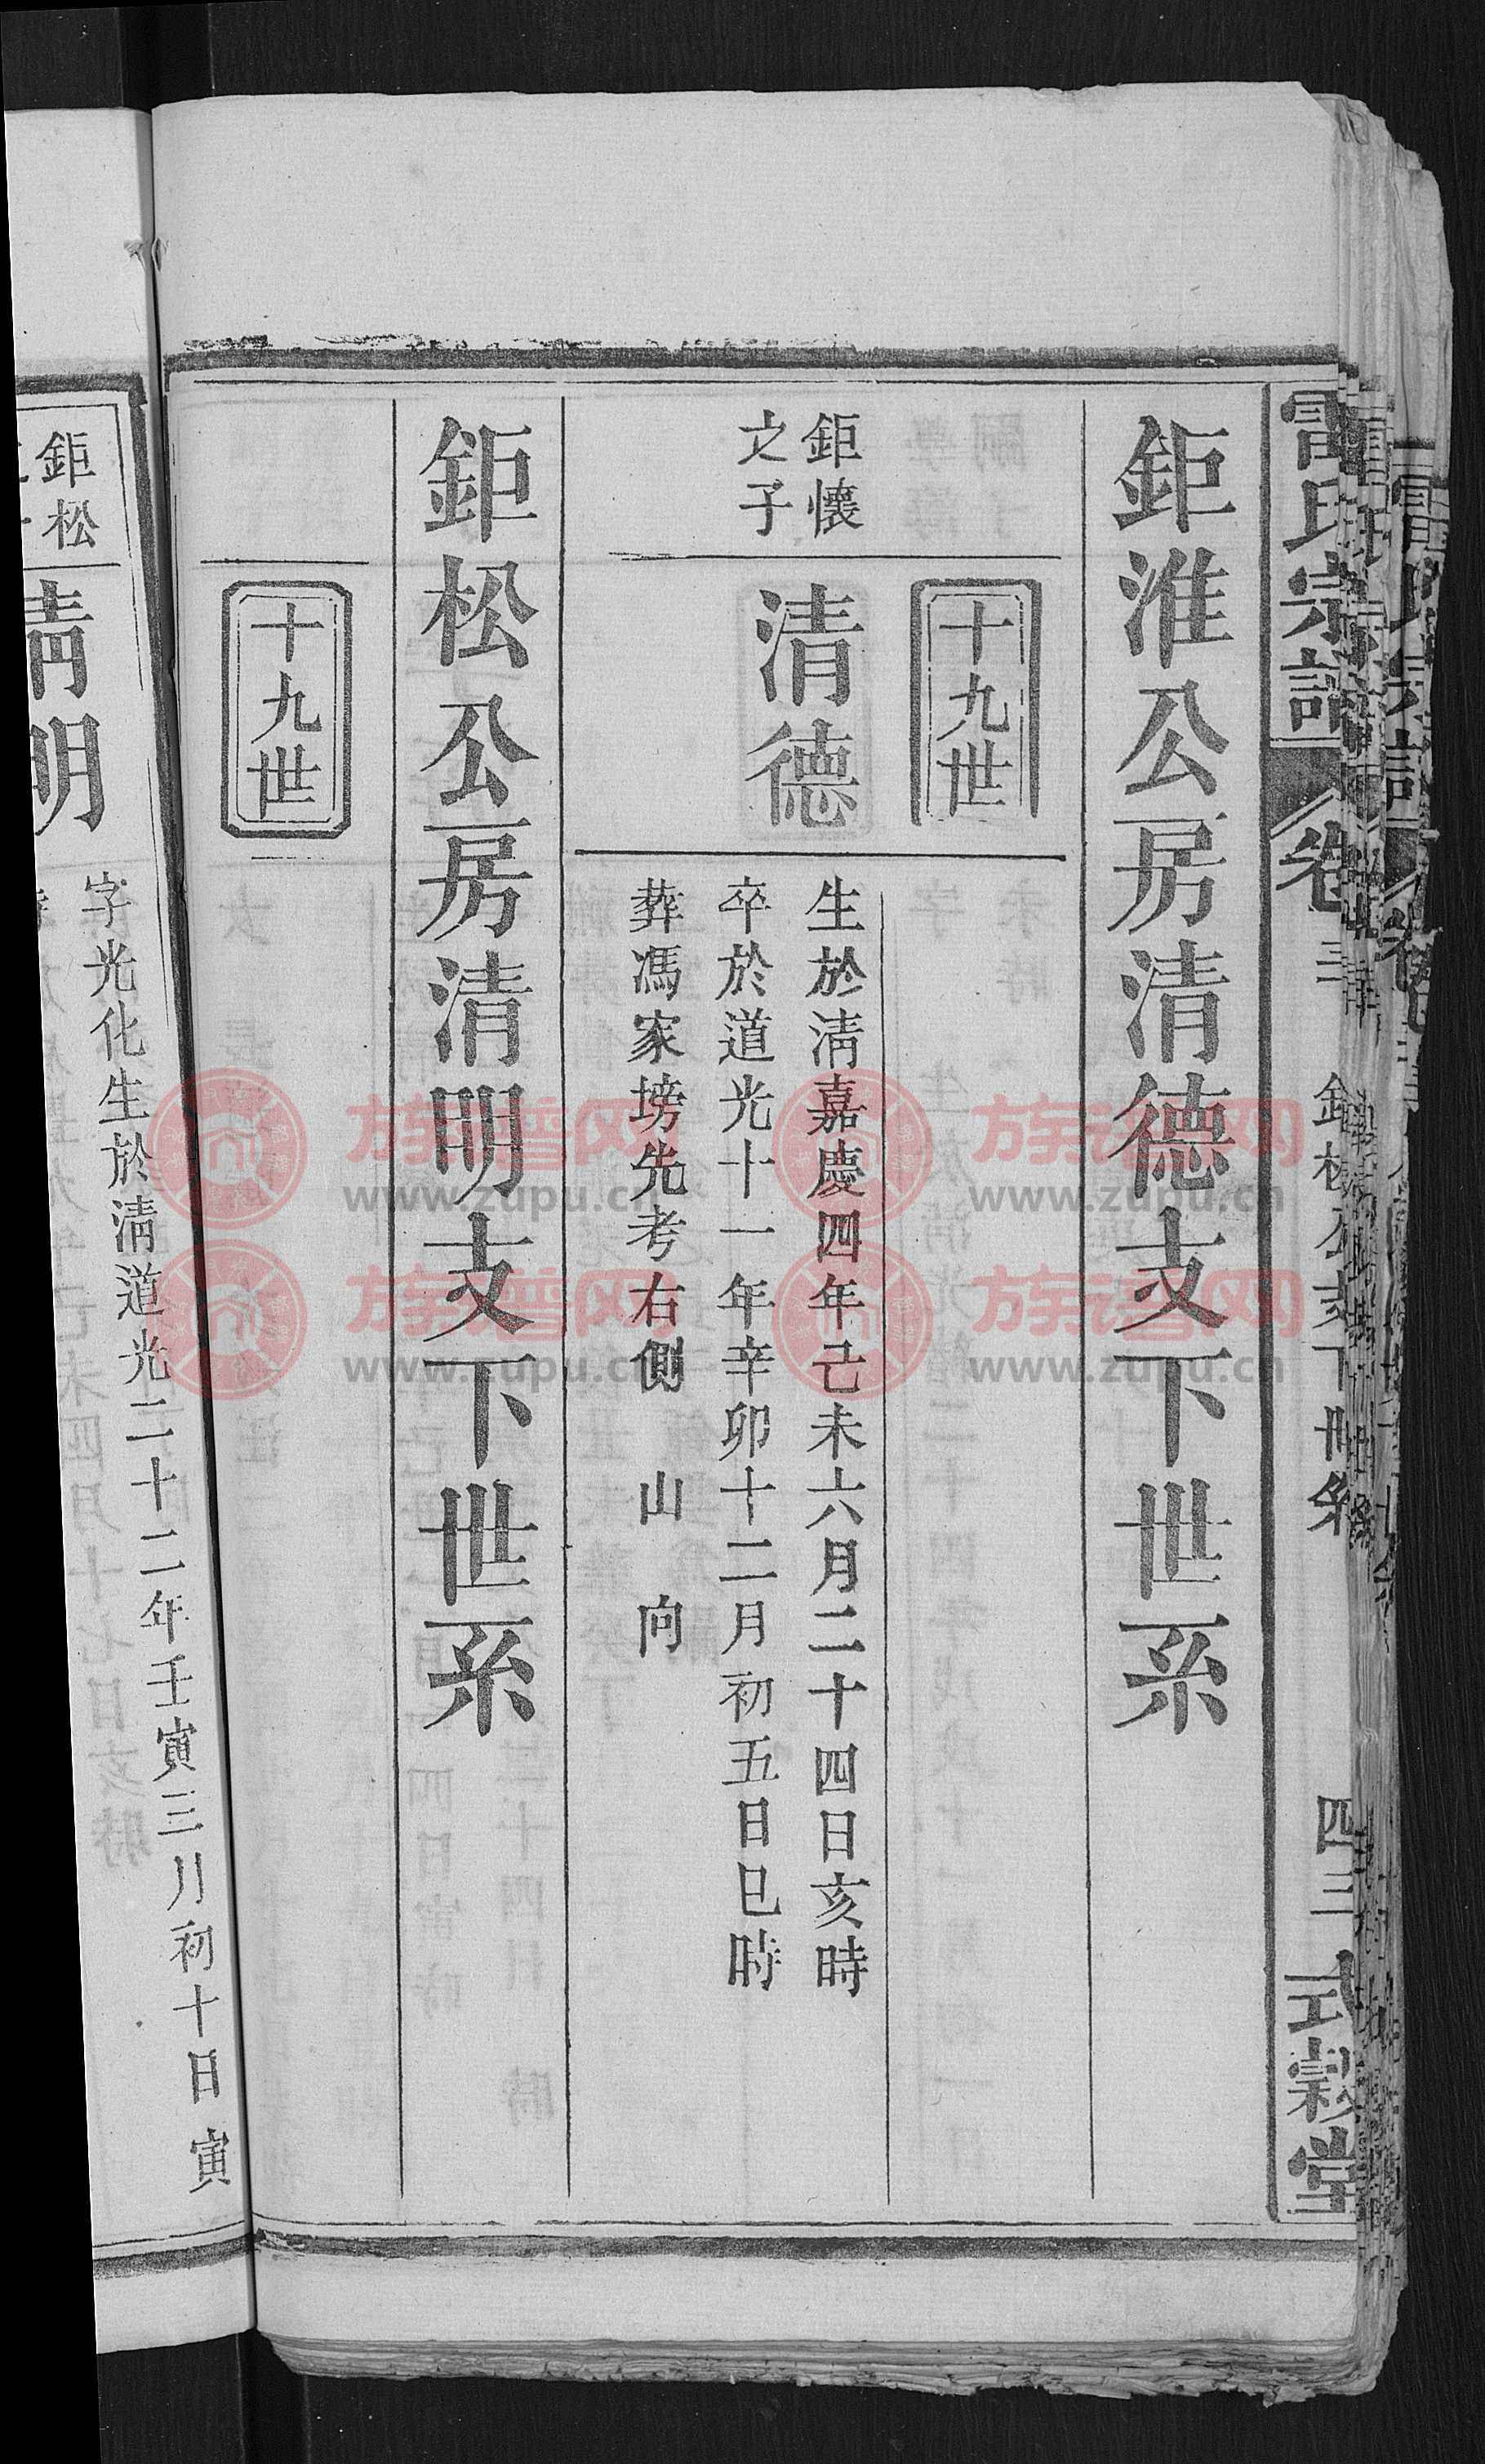 雷氏宗譜
卷三
鉅松公支下世系
四三
式穀堂
鉅淮公房清德支下世系
十九世
鉅懷
之子
清德
生於清嘉慶四年己未六月二十四日亥時
卒於道光十一年辛卯十二月初五日巳時
葬馮家塝先考右側 山 向
鉅松公房清明支下世系
十九世
鉅松
清明
字光化生於清道光二十二年壬寅三月初十日寅
族谱网
www.zupu.cn
族谱网
www.zupu.cn
族谱网
www.zupu.cn
族谱网
www.zupu.cn